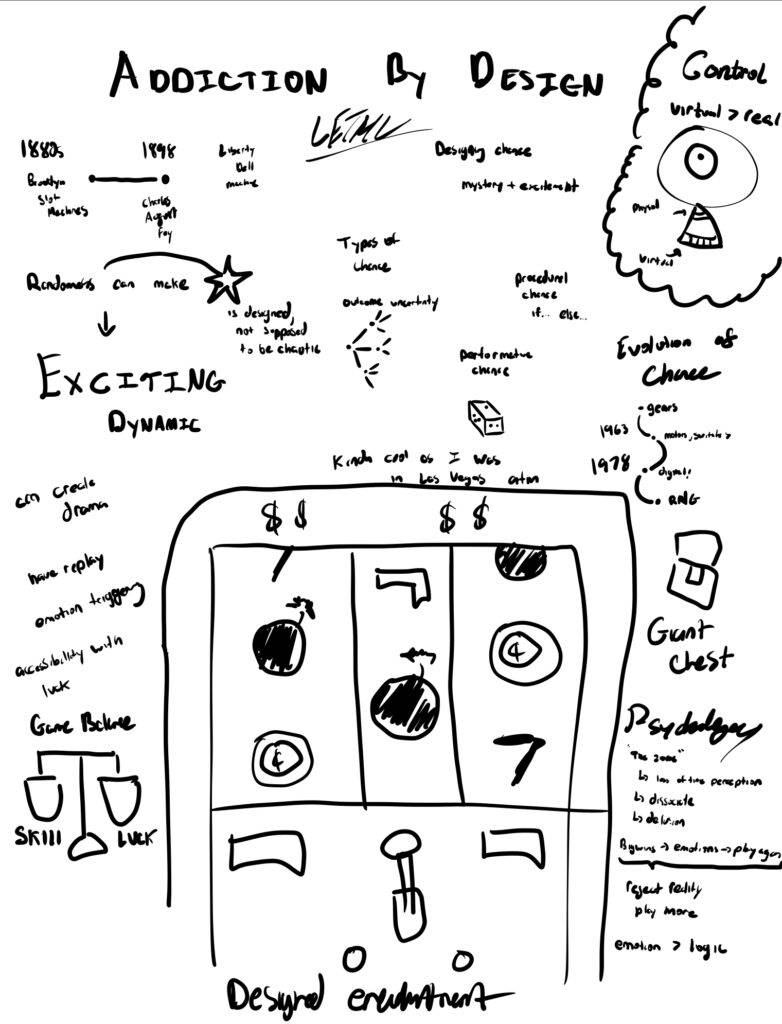 ADDICTION BY DESIGN
Control
virtual > real
physical
virtual
1880s
Brooklyn
Slot
Machines
1898
Charles
August
Fey
Liberty
Bell
machine
Designing chance
mystery + excitement
Randomness can make
is designed,
not supposed
to be chaotic
EXCITING
DYNAMIC
Types of
chance
outcome uncertainty
procedural
chance
if... else...
performative
chance
Evolution of
Chance
gears
1963
motors, switches
1978
digital!
RNG
Kinda cool as I was
in Las Vegas
$ $
$ $
can create
drama
have replay
emotion triggering
accessibility with
luck
Game Balance
SKIll
LUCK
Giant
Chest
Psychology
"The zone"
↳ loss of time perception
↳ dissociate
↳ delusion
Big wins → emotions → play again
reject reality
play more
emotion > logic
Designed